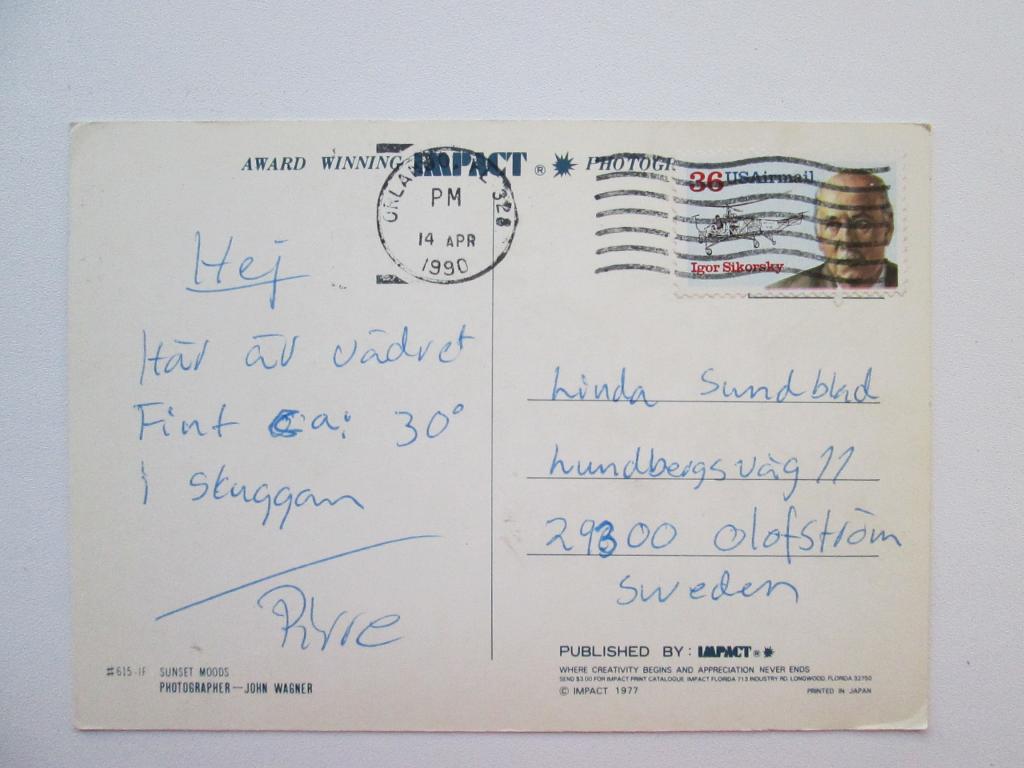 AWARD WINNING IMPACT ® PHOTOGR
PM
14 APR
1990
328
36 USAirmail
Igor Sikorsky
Hej
Här är vädret
Fint ca: 30°
i skuggan
Pirre
Linda Sundblad
Lundbergsväg 11
29300 Olofström
Sweden
#615-IF SUNSET MOODS
PHOTOGRAPHER—JOHN WAGNER
PUBLISHED BY: IMPACT ®
WHERE CREATIVITY BEGINS AND APPRECIATION NEVER ENDS
SEND $3.00 FOR IMPACT PRINT CATALOGUE. IMPACT FLORIDA 713 INDUSTRY RD. LONGWOOD, FLORIDA 32750
© IMPACT 1977 PRINTED IN JAPAN